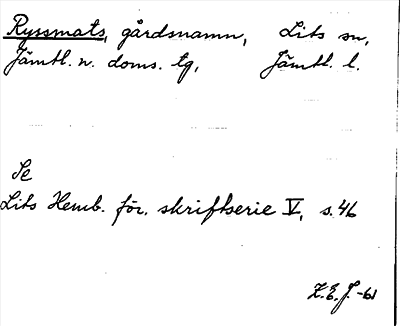 Ryssmats, gårdsnamn, Lits sn,
Jämtl. n. doms. tg, Jämtl. l.
Se
Lits Hemb. för. skriftserie V, s. 46
Z.E.J. -61